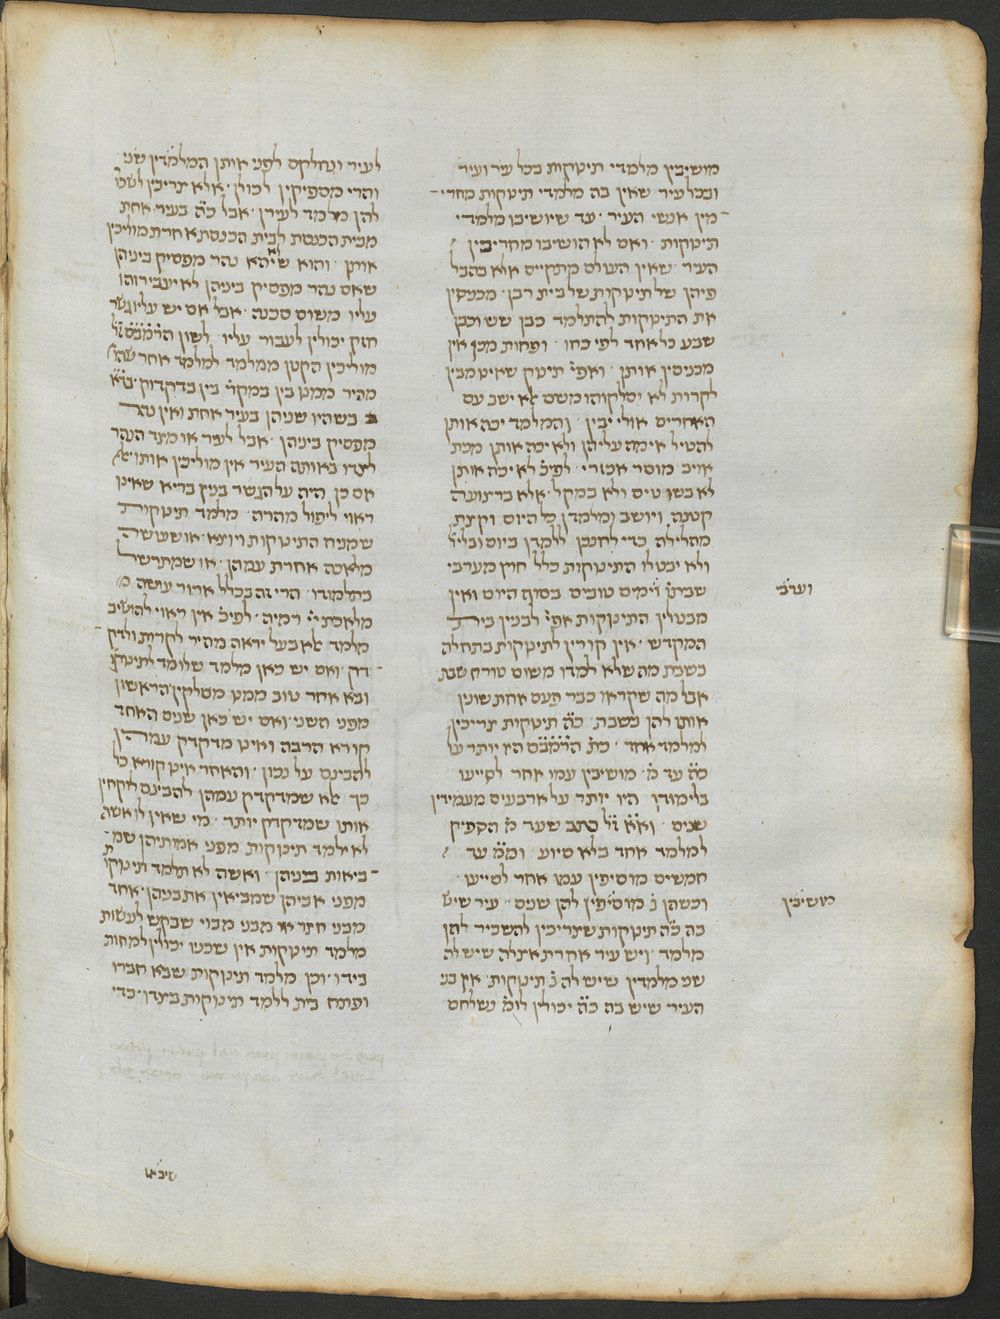 מושיבין מלמדי תינוקות בכל עיר ועיר
ובכל עיר שאין בה מלמדי תינוקות מחרי
מין אנשי העיר עד שיושיבו מלמדי
תינוקות ואם לא הושיבו מחריבין
העיר שאין העולם מתקיים אלא בהבל
פיהן של תינוקות של בית רבן מכניסין
את התינוקות להתלמד כבן שש וכבן
שבע כל אחד לפי כחו ופחות מכן אין
מכניסין אותן ואפי' תינוק שאינו מבין
לקרות לא יסלקוהו משם אלא ישב עם
האחרים אולי יבין והמלמד יכה אותן
להטיל אימה עליהן ולא יכה אותן מכת
אויב מוסר אכזרי לפיכ' לא יכה אותן
לא בשוטים ולא במקל אלא ברצועה
קטנה ויושב ומלמדן כל היום וקצת
מהלילה כדי לחנכן ללמדן ביום ובליל'
ולא יבטלו התינוקות כלל חוץ מערבי
וערבי
שבתו' וימים טובים בסוף היום ואין
מבטלין התינוקות אפי' לבנין בית
המקדש אין קורין לתינוקות בתחלה
בשבת מה שלא למדו משום טורח שבת
אבל מה שקראו כבר פעם אחת שונין
אותו להן בשבת כ"ה תינוקות צריכין
למלמד אחד כת' הרמב"ם היו יותר על
כ"ה עד מ' מושיבין עמו אחר לסייעו
בלימודן היו יותר על ארבעים מעמידין
שנים וא"א ז"ל כתב שעד מ' הספיק
למלמד אחד בלא סיוע ומ"מ עד
חמשים מוסיפין עמו אחר לסייעו
וכשהן נ' מוסיפין להן שנים עיר שיש
מושיבין
בה כ"ה תינוקות שצריכין להשכיר להן
מלמד ויש עיר אחרת אצלה שיש לה
שני מלמדין שיש לה נ' תינוקות אין בני
העיר שיש בה כ"ה יכולין לומ' נשלחם
לעיר ונחלקם לפני אותן המלמדין שני
והרי מספיקין לכולן אלא צריכין לשכו'
להן מלמד לעירן אבל כ"ה בעיר אחת
מבית הכנסת לבית הכנסת אחרת מוליכין
אותן והוא שלא יהא נהר מפסיק ביניהן
שאם נהר מפסיק ביניהן לא יעבירוהו
עליו משום סכנה אבל אם יש עליו גשר
חזק יכולין לעבור עליו לשון הרמב"ם ז"ל
מוליכין הקטן ממלמד למלמד אחר שהו'
מהיר ממנו בין במקר' בין בדקדוק בד"א
בשהיו שניהן בעיר אחת ואין נהר
מפסיק ביניהן אבל לעיר או מצד הנהר
לצדו באותה העיר אין מוליכין אותו אלא
אם כן היה על הגשר בנין בריא שאינו
ראוי ליפול מהרה מלמד תינוקות
שמניח התינוקות ויוצא או שעושה
מלאכה אחרת עמהן או שמתרשל
בתלמודו הרי זה בכלל ארור עושה
מלאכת יי' רמיה לפיכ' אין ראוי להושיב
מלמד אלא בעל יראה מהיר לקרות ולדק
דק ואם יש כאן מלמד שלומד לתינוקו'
ובא אחר טוב ממנו מסלקין הראשון
מפני השני ואם יש כאן שנים האחד
קורא הרבה ואינו מדקדק עמהן
להבינם על נכון והאחר אינו קורא כל
כך אלא שמדקדק עמהן להבינם לוקחין
אותו שמדקדק יותר מי שאין לו אשה
לא ילמד תינוקות מפני אמותיהן שמ'
ביאות בניהן ואשה לא תלמד תינוקו'
מפני אביהן שמביאין את בניהן אחד
מבני חצר או מבני מבוי שבקש לעשות
מלמד תינוקות אין שכנו יכולין למחות
בידו וכן מלמד תינוקות שבא חברו
ופתח בית ללמד תינוקות בצדו כדי
שיבאו